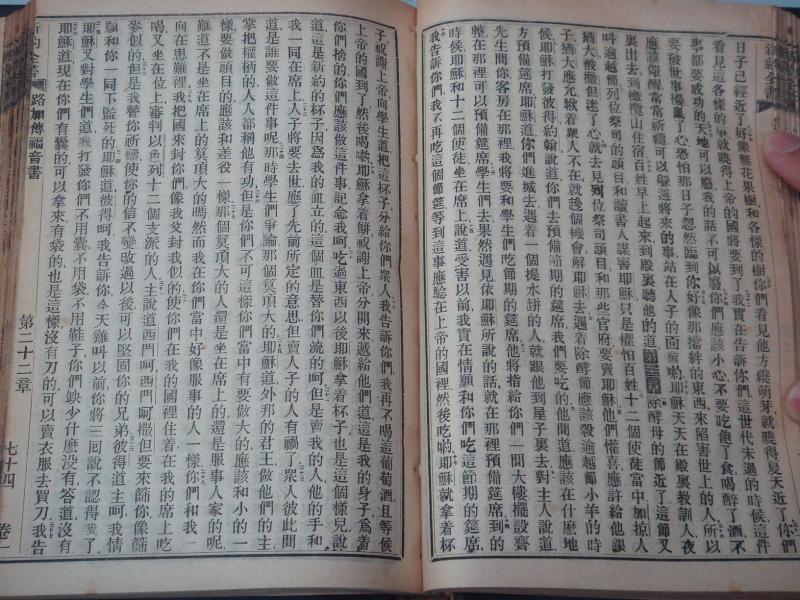 新約全書
日子已經近了好像無花果樹和各樣的樹你們看見他方纔萌芽就曉得夏天近了你們
看見這各樣的事就曉得上帝的國將要到了我實在告訴你們這世代未過的時候這件
事都要成功的天地可以廢我的話不可以廢你們應該小心不要吃飽了食喝醉了酒不
要被世事擾亂了心恐怕那日子忽然臨到你好像那擋絆的東西來陷害世上的人所以
應該儆醒常常祈禱可以躲避將來的事站在人子的面前喲耶穌天天在殿裏教訓人夜
裏出去到橄欖山住宿百姓早上起來到殿裏聽他的道除酵母的節近了這節
叫逾越節列位祭司的頭目和讀書人謀害耶穌只是懼怕百姓十二個使徒當中加掠人
猶大被撒但迷了心就去見列位祭司頭目和那些官府要賣耶穌他們懽喜應許給他銀
子猶大應允瞅着衆人不在就趁個機會解耶穌去遇着除酵節應該殺逾越節小羊的時
候耶穌打發彼得約翰說道你們去預備節期的筵席我們要吃的他問道應該在什麽地
方預備筵席耶穌道你們進城去遇着一個提水缾的人就跟他到屋子裏去對主人說道
先生問你客房在那裡我將要和學生們吃節期的筵席他將指給你們一間大樓擺設齊
整在那裡可以預備筵席學生們去果然遇見依耶穌所說的話就在那裡預備筵席到的
時候耶穌和十二個使徒坐在席上說道受害以前我實在情願和你們吃這節期的筵席
我告訴你們我不再吃這個節筵等到這事應驗在上帝的國裡然後吃喲耶穌就拿着杯
子祝謝上帝向學生道把這杯子分給你們衆人我告訴你們我再不喝這葡萄酒且等候
上帝的國到了然後喝喲耶穌拿着餅祝謝上帝分開來遞給他們道這是我的身子爲着
你們捨的你們應該做這件事記念我呵吃過東西以後耶穌拿着杯子也是這個樣兒說
道這是新約的杯子因爲我的血立的這個血是替你們流的呵但是賣我的人他的手和
我一同在席上人子將要去世應了先前所定的意思但賣人子的人有禍了衆人彼此問
道是誰要做這件事呢那時學生們爭論那個莫頂大的耶穌道外邦的君王做他們的主
掌把權柄的人人都稱他有功但是你們不可這樣你們當中有要做大的應該和小的一
樣要做頭目的應該和差役一樣那個莫頂大的人還是坐在席上的還是服事人家的呢
難道不是坐在席上的莫頂大的嗎然而我在你們當中好像服事的人一樣你們和我一
向在患難裡我把國來封你們像我父封我似的使你們在我的國裡住着在我的席上吃
喝又坐在位上審判以色列十二個支派的人主說道西門呵西門呵撒但要來篩你像篩
麥似的但是我替你祈禱使你的信不變改過以後可以堅固你的兄弟彼得道主呵我情
願和你一同下監死的耶穌道彼得呵我告訴你今天雞叫以前你將三囘說不認得我了
耶穌又對學生們道我打發你們不用囊不用袋不用鞋子你們缺少什麽没有答道没有
耶穌道現在你們有囊的可以拿來有袋的也是這樣没有刀的可以賣衣服去買刀我告
新約全書 路加傳福音書 第二十二章 七十四 卷一